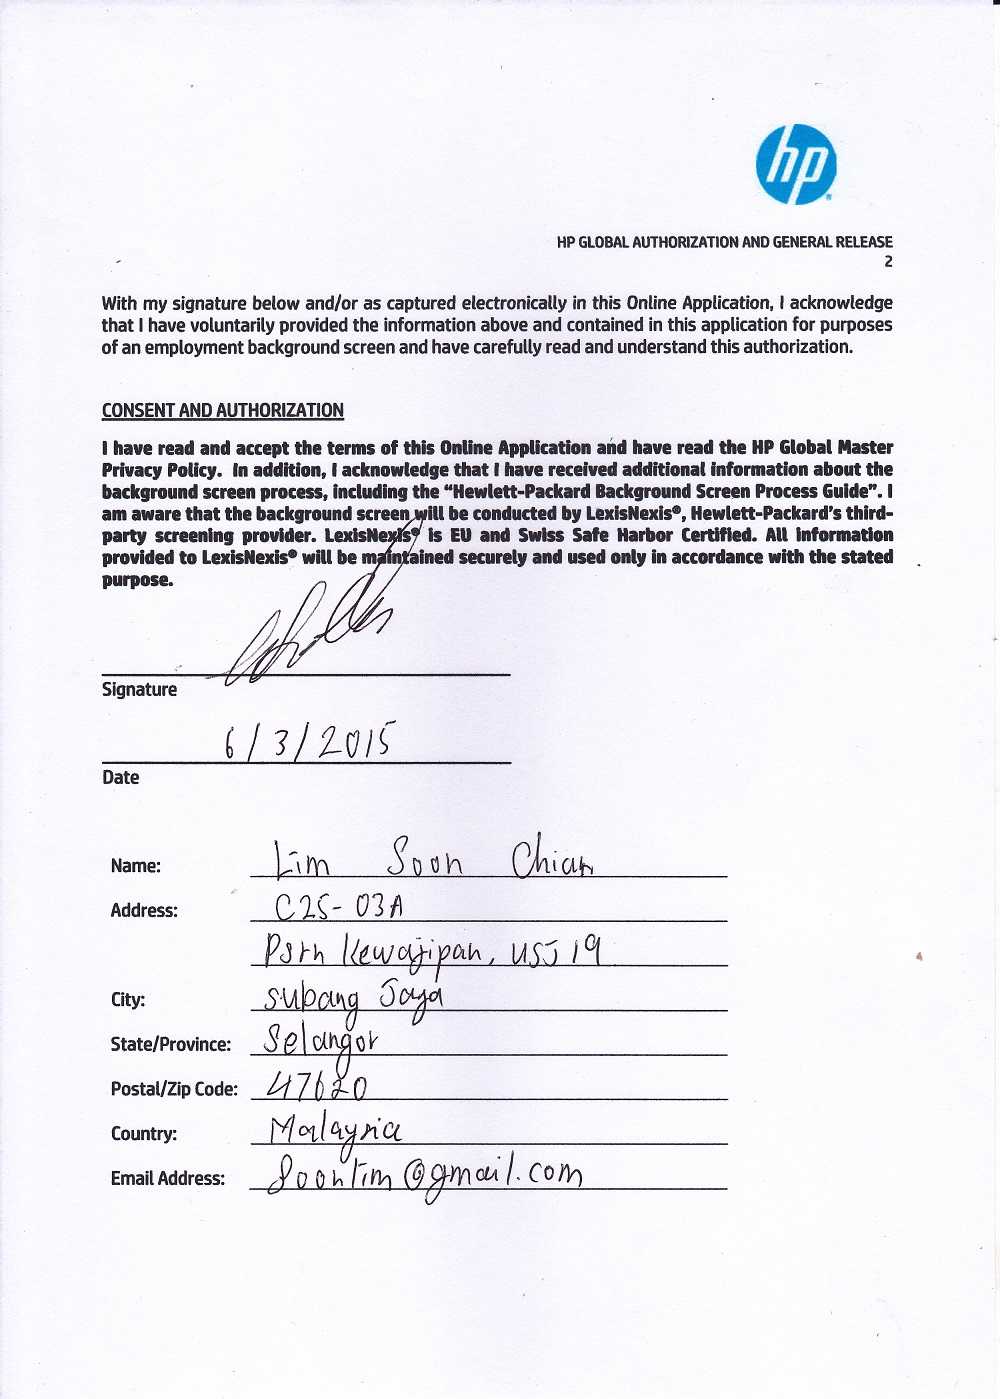 hp
HP GLOBAL AUTHORIZATION AND GENERAL RELEASE
2
With my signature below and/or as captured electronically in this Online Application, I acknowledge
that I have voluntarily provided the information above and contained in this application for purposes
of an employment background screen and have carefully read and understand this authorization.
CONSENT AND AUTHORIZATION
I have read and accept the terms of this Online Application and have read the HP Global Master
Privacy Policy. In addition, I acknowledge that I have received additional information about the
background screen process, including the “Hewlett-Packard Background Screen Process Guide”. I
am aware that the background screen will be conducted by LexisNexis®, Hewlett-Packard’s third-
party screening provider. LexisNexis® is EU and Swiss Safe Harbor Certified. All information
provided to LexisNexis® will be maintained securely and used only in accordance with the stated
purpose.
Signature
6/3/2015
Date
Name: Lim Soon Chian
Address: C25-03A
Psrn Kewajipan, USJ 19
City: Subang Jaya
State/Province: Selangor
Postal/Zip Code: 47620
Country: Malaysia
Email Address: Soonlim@gmail.com